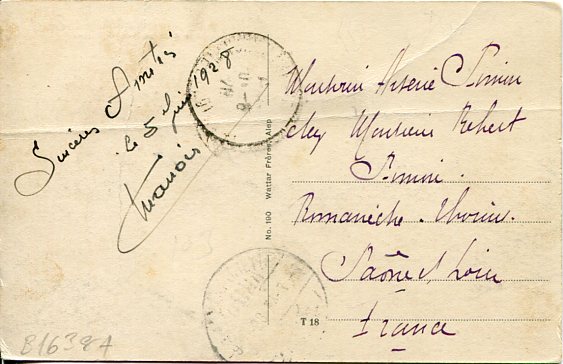 Sincères Amitiés
le 5 Juin 1928
No. 190 Wattar Frères, Alep
Monsieur Arsène Simon
chez Monsieur Robert
Simon
Romanèche-Thorin
Saône et Loire
France
T 18
81638A